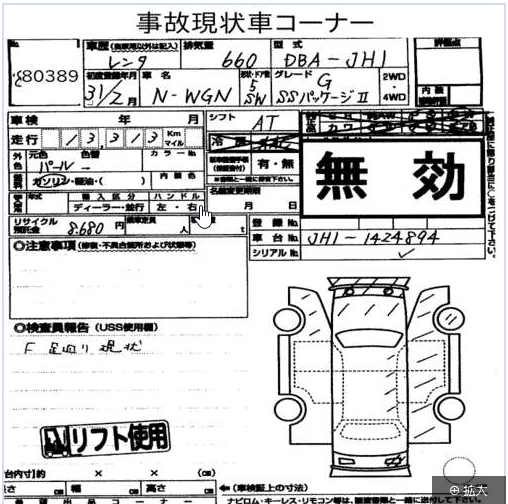 事故現状車コーナー
No. 80389
車歴(自家用以外は記入) レンタ
排気量 660
型式 DBA-JH1
評価点
初度登録年月 31/2月
車名 N-WGN
形状・ドア数 5 SW
グレード G SSパッケージⅡ
2WD・4WD
内装
車検 年 月
シフト AT
走行 13,313 Km マイル
冷房
有・無
無効
外色 元色 色替 カラーNo.
パール→
燃料 ガソリン・軽油・( ) 内装色
年式 輸入区分 ハンドル
ディーラー・並行 左・右
名義変更期限 月 日
リサイクル預託金 8.680円
乗車定員 人
t
登録No.
車台No. JH1-1424894
シリアルNo.
◎注意事項(修復・不具合箇所および状態等)
◎検査員報告(USS使用欄)
F 足廻り 現状
リフト使用
台内寸)約 × × (㎝)
長さ ㎝ 幅 ㎝ 高さ ㎝
←(車検証上の寸法)
ナビロム・キーレス・リモコン等は、
拡大